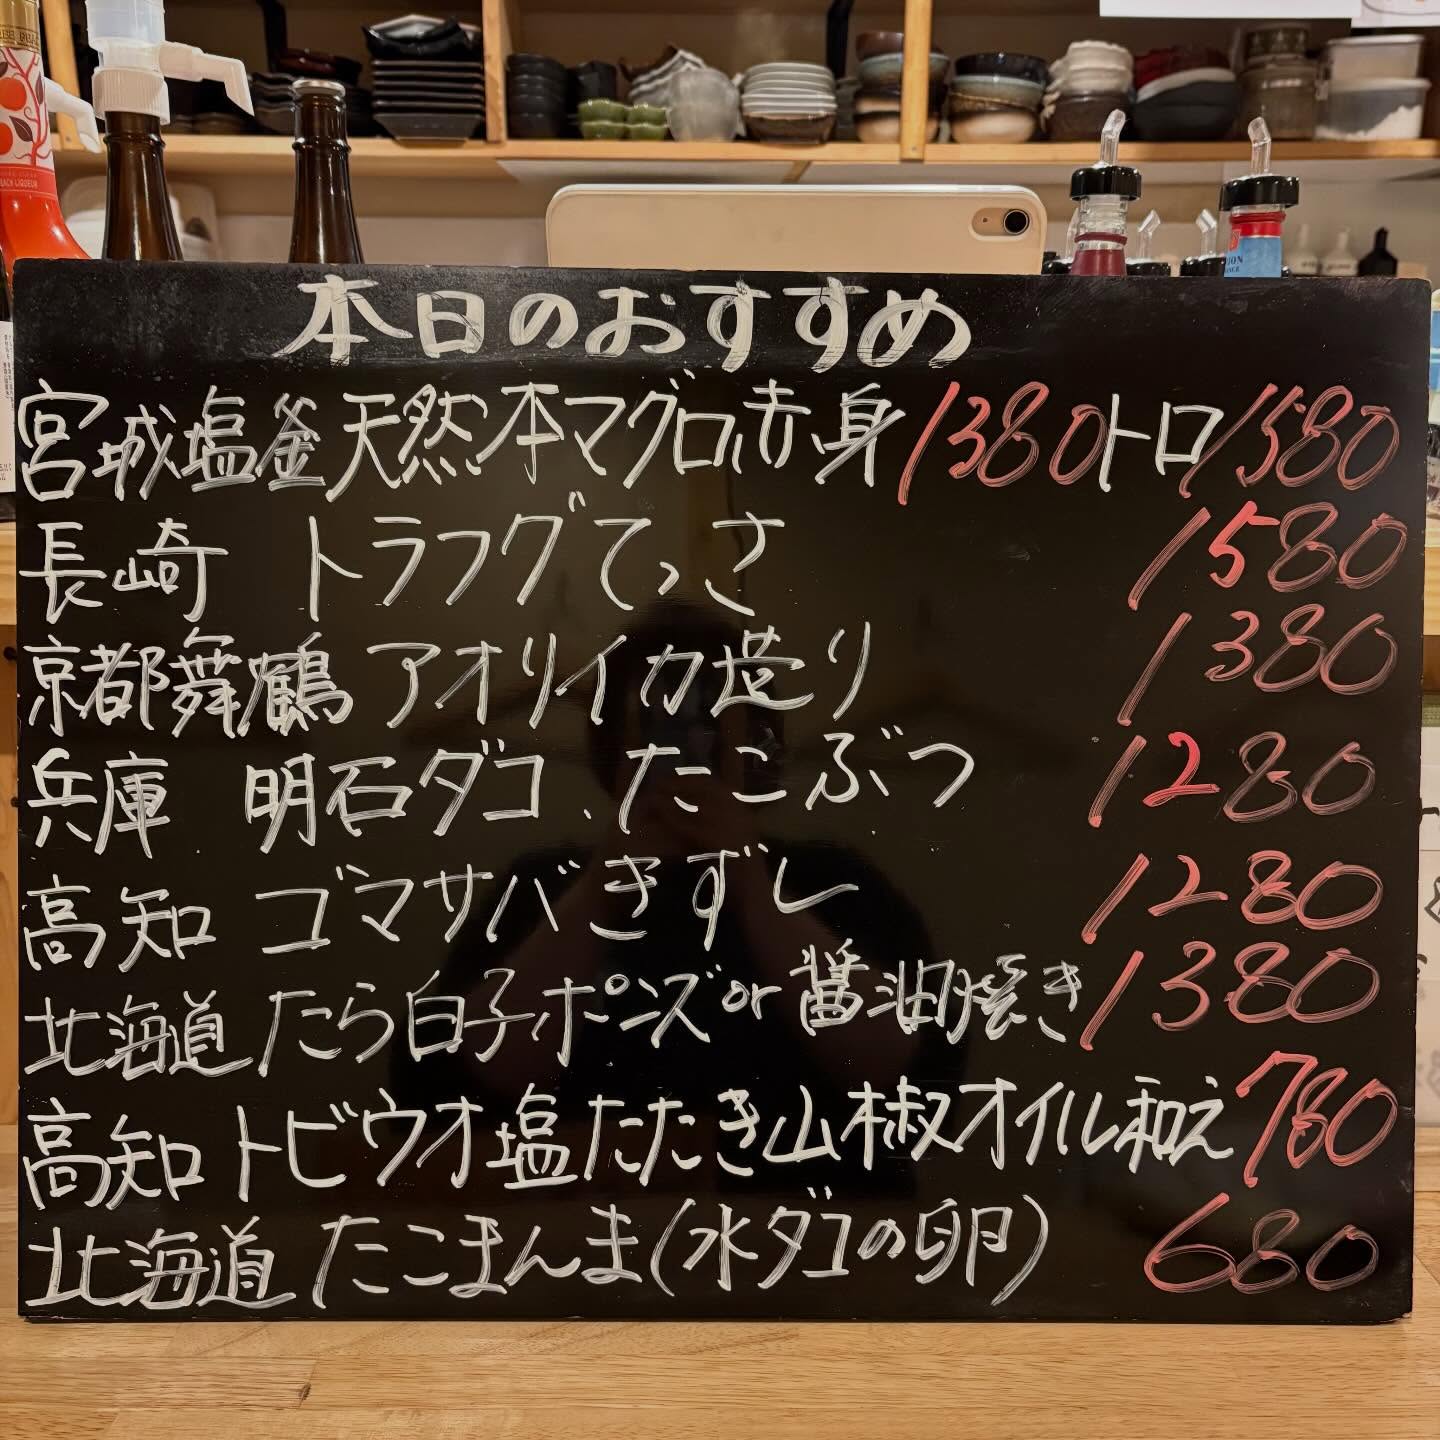 本日のおすすめ
宮城塩釜天然本マグロ赤身1380トロ1580
長崎 トラフグてっさ 1580
京都舞鶴 アオリイカ造り 1380
兵庫 明石ダコ、たこぶつ 1280
高知 ゴマサバきずし 1280
北海道 たら白子ポンズor醤油焼き 1380
高知 トビウオ塩たたき山椒オイル和え 780
北海道 たこまんま(水ダコの卵) 680